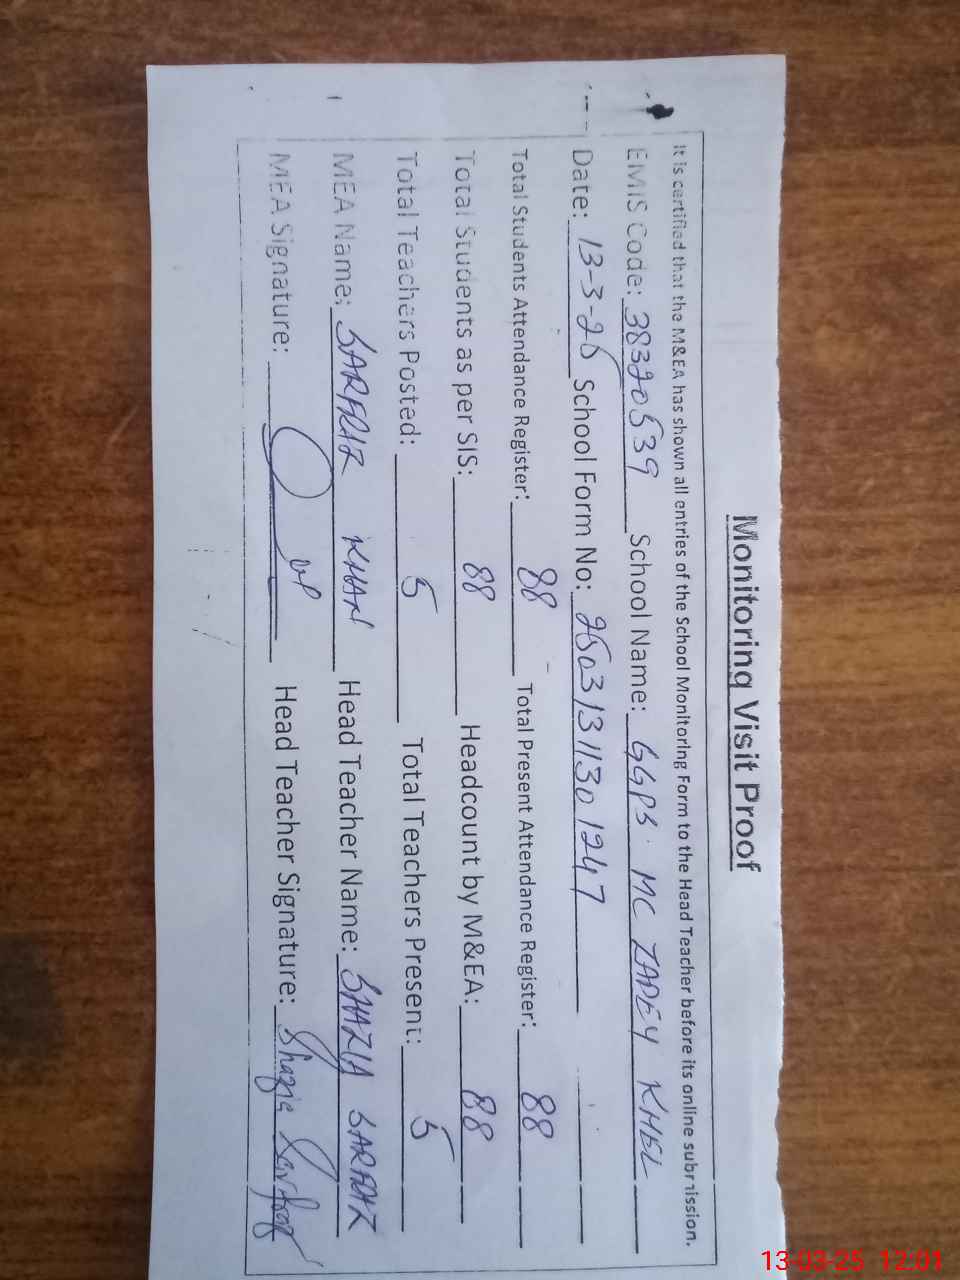 Monitoring Visit Proof
It is certified that the M&EA has shown all entries of the School Monitoring Form to the Head Teacher before its online submission.
EMIS Code: 38320539 School Name: GGPS MC ZAREY KHEL
Date: 13-3-25 School Form No: 25031311301247
Total Students Attendance Register: 88 Total Present Attendance Register: 88
Total Students as per SIS: 88 Headcount by M&EA: 88
Total Teachers Posted: 5 Total Teachers Present: 5
MEA Name: SARFRAZ KHAN Head Teacher Name: SHAZIA SARFRAZ
MEA Signature: Head Teacher Signature: Shazia Sarfraz
13-03-25 12:01